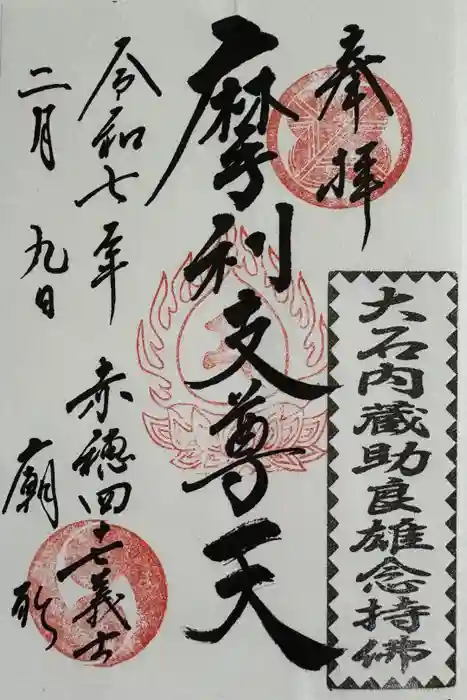 奉拝
大石内蔵助良雄念持佛
摩利支尊天
令和七年
二月九日
赤穂四十七義士
廟所